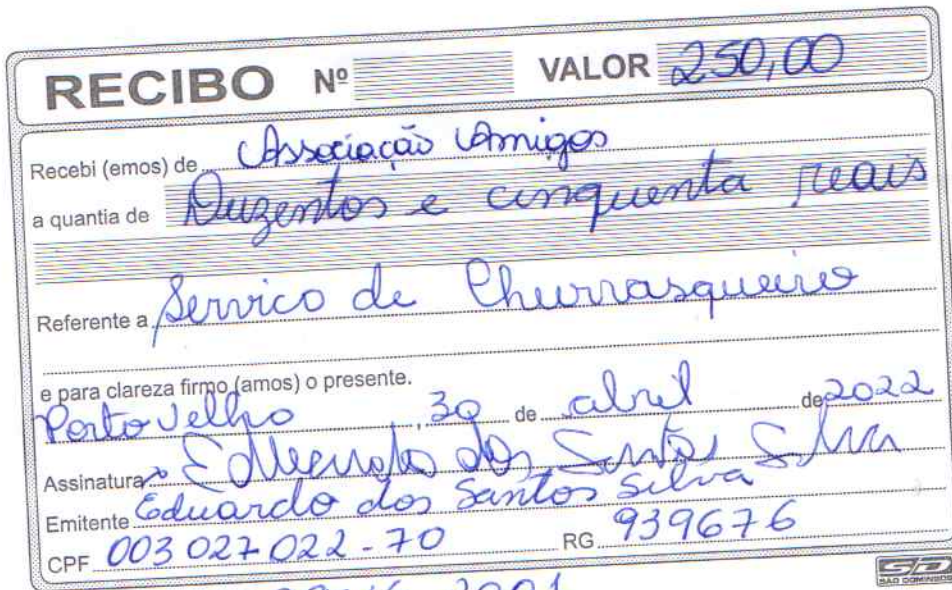 RECIBO Nº VALOR 250,00
Recebi (emos) de Associação Amigos
a quantia de Duzentos e cinquenta reais
Referente a Servico de Churrasqueiro
e para clareza firmo (amos) o presente.
Porto Velho, 30 de abril de 2022
Assinatura Eduardo dos Santos Silva
Emitente Eduardo dos Santos Silva
CPF 003 027 022 - 70 RG 939676
SD
SÃO DOMINGOS